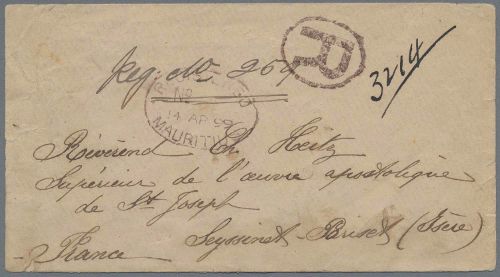 R
Reg. No. 259
3214
No
14 AP 99
MAURITIUS
Révérend Ch. Hertz
Supérieur de l'œuvre apostolique
de St Joseph
Seyssinet-Pariset (Isère)
France